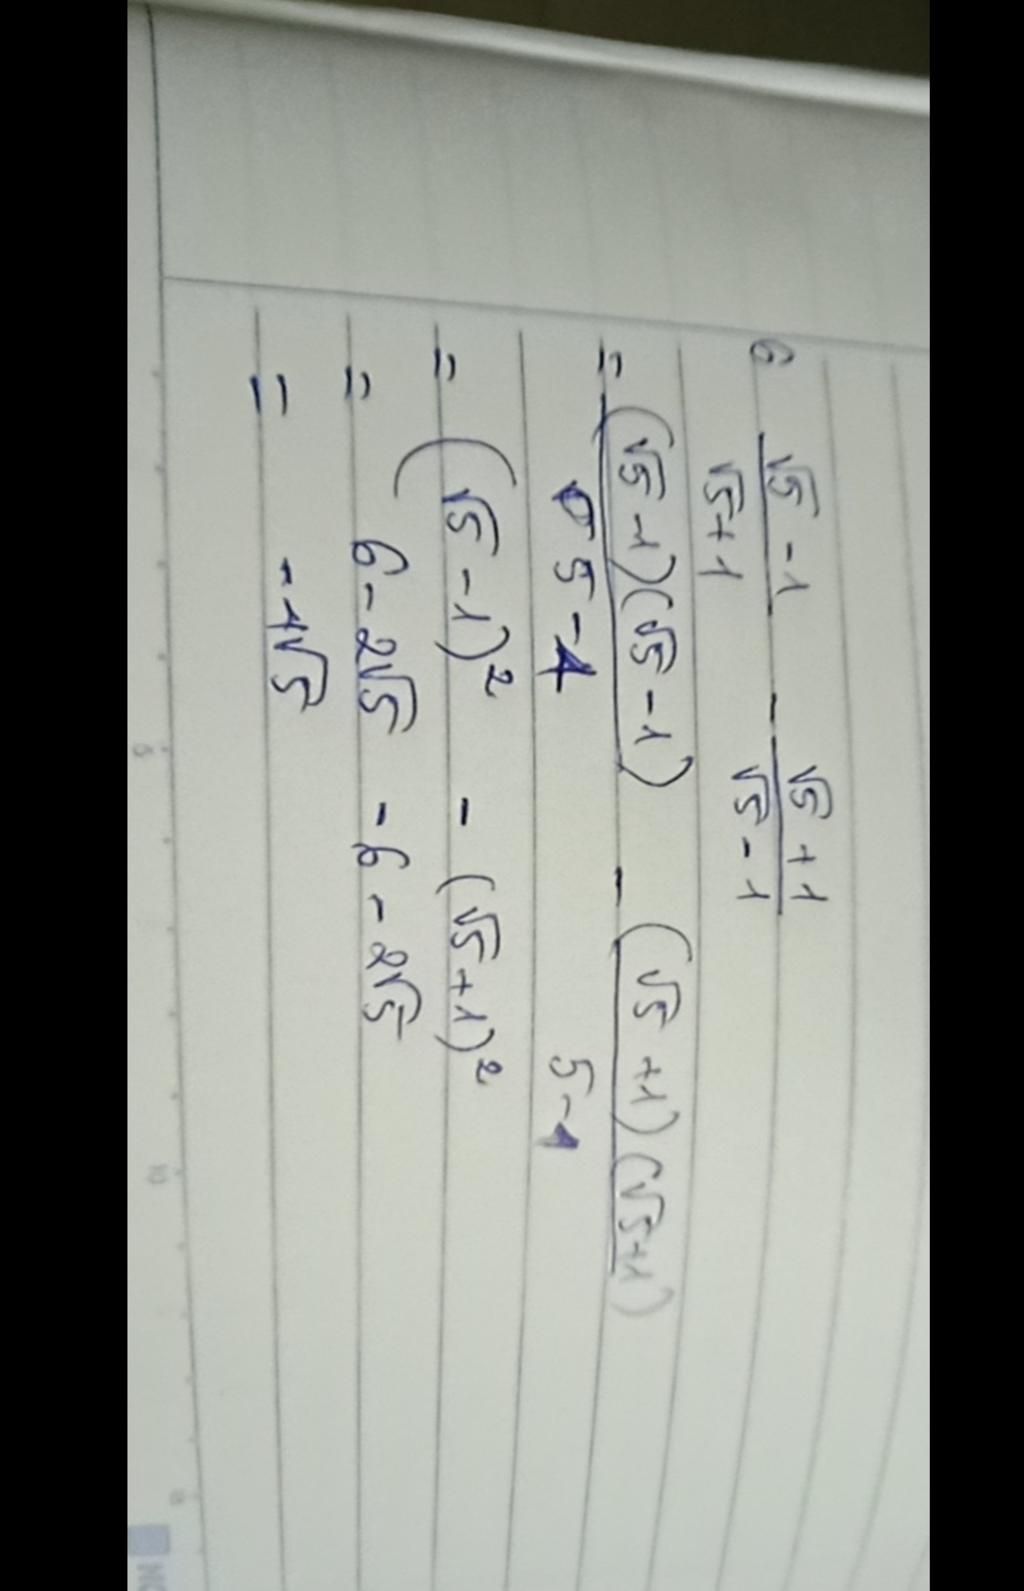 6 (√5 - 1)/(√5 + 1) - (√5 + 1)/(√5 - 1)
= (√5 - 1)(√5 - 1)/(5 - 1) - (√5 + 1)(√5 + 1)/(5 - 1)
= (√5 - 1)² - (√5 + 1)²
= 6 - 2√5 - 6 - 2√5
= - 4√5